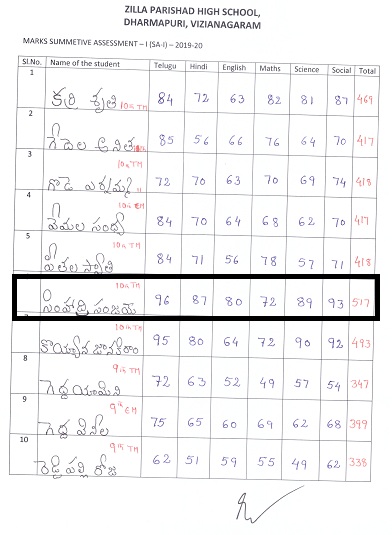 ZILLA PARISHAD HIGH SCHOOL,
DHARMAPURI, VIZIANAGARAM
MARKS SUMMETIVE ASSESSMENT – I (SA-I) – 2019-20
Sl.No. Name of the student Telugu Hindi English Maths Science Social Total
1 కర్రి శృతి 10th TM 84 72 63 82 81 87 469
2 గేదెల అనిత 85 56 66 76 64 70 417
3 10th TM
గొడె 72 70 63 70 69 74 418
4 10th EM
వేమల సంధ్య 84 70 64 68 62 70 417
5 10th TM
పీతల స్వాతి 84 71 56 78 57 71 418
10th TM
సింహాద్రి సంజయ్ 96 87 80 72 89 93 517
10th TM
కొయ్యాన జానకిరాం 95 80 64 72 90 92 493
8 9th TM
గెద్ద యామిని 72 63 52 49 57 54 347
9 9th EM
గెద్ద వెన్నెల 75 65 60 69 62 68 399
10 9th TM
రెడ్డిపల్లి రోజా 62 51 59 55 49 62 338